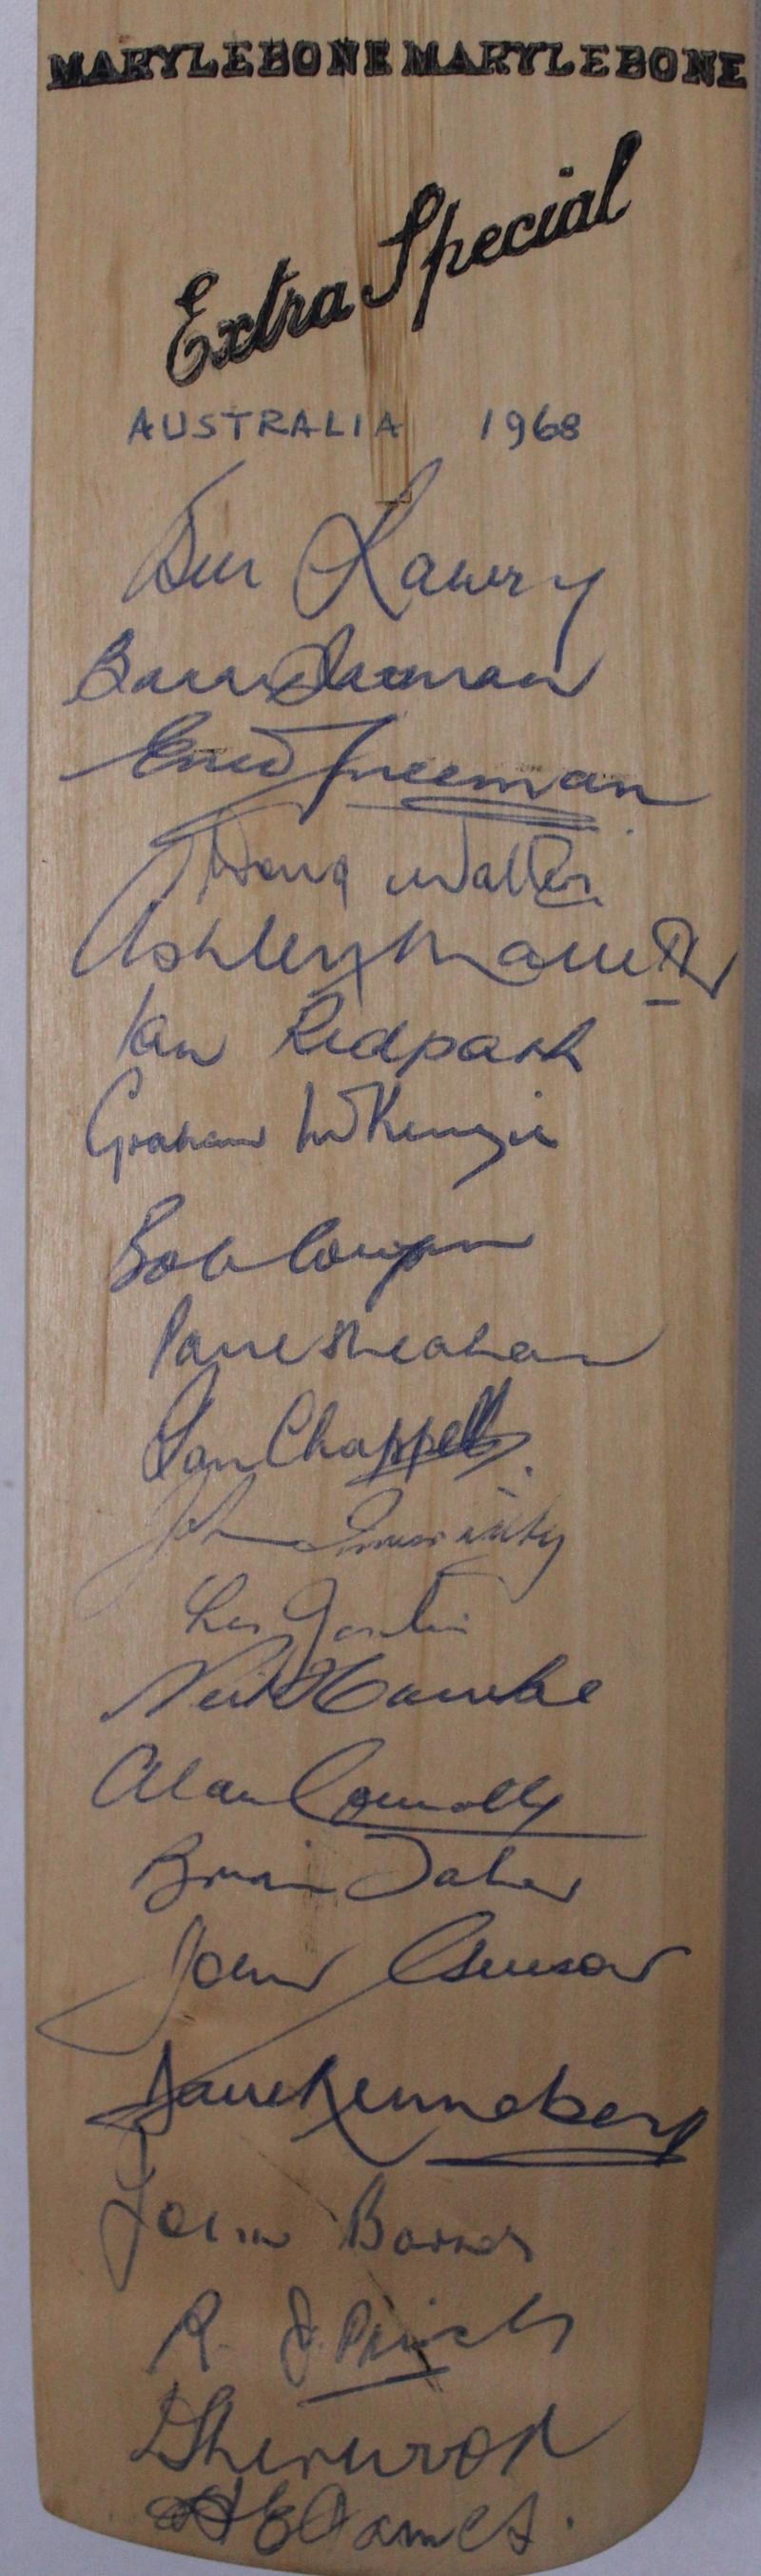 MARYLEBONE MARYLEBONE
Extra Special
AUSTRALIA 1968
Bill Lawry
Barry Jarman
Eric Freeman
Doug Walters
Ashley Mallett
Ian Redpath
Graham McKenzie
Bob Cowper
Paul Sheahan
Ian Chappell
John Inverarity
Les Joslin
Neil Hawke
Alan Connolly
Brian Taber
John Gleeson
Dave Renneberg
John
R. J. Parish
D Sherwood
James